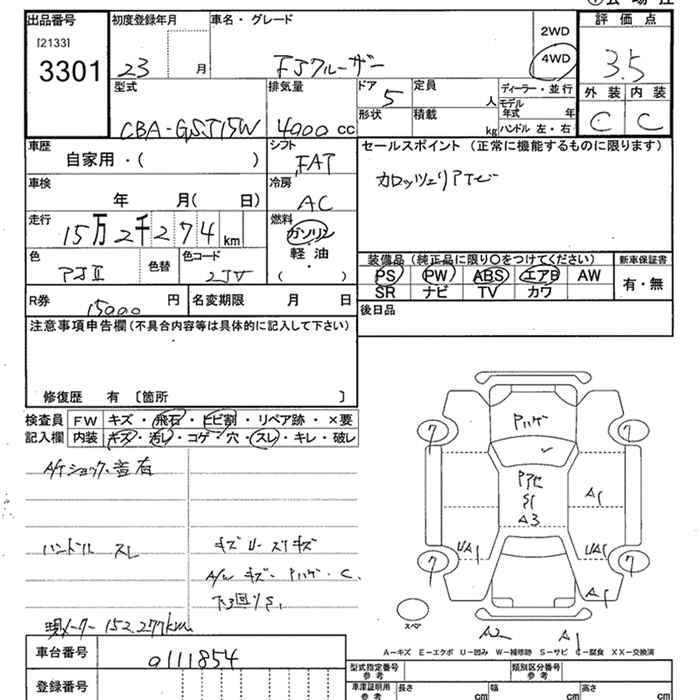 出品番号 初度登録年月 車名・グレード 評価点
[2133]
3301 23 月 FJクルーザー 2WD 4WD 3.5
型式 排気量 ドア 5 定員 人 ディーラー・並行 外装 内装
CBA-GSJ15W 4000 cc 形状 積載 kg モデル年式 年 ハンドル 左・右 C C
車歴 シフト セールスポイント (正常に機能するものに限ります)
自家用・( ) FAT
車検 冷房 カロッツェリアTV
年 月( 日) AC
走行 燃料
15万2千274km ガソリン
色 色替 色コード 軽油・ 装備品 (純正品に限り○をつけてください) 新車保証書
2JV ( ) PS PW ABS エアB AW 有・無
R券 15000 円 名変期限 月 日 SR ナビ TV カワ
注意事項申告欄(不具合内容等は具体的に記入して下さい) 後日品
修復歴 有 [箇所 ]
検査員 FW キズ・飛石・ヒビ割・リペア跡・×要
記入欄 内装 キズ・汚レ・コゲ・穴・スレ・キレ・破レ
A/Tショック 有
ハンドル スレ
キズ U・スリキズ
A/W キズ・Pハゲ・C
下廻りS.
現メーター 152,277km
Pハゲ
7 7
S1
A3
A1
UA1 UA1
7 7
A1
スペア
A2 A1
A-キズ E-エクボ U-凹み W-補修跡 S-サビ C-腐食 XX-交換済
車台番号 0111854
型式指定番号 参考 類別区分番号 参考
登録番号 車庫証明用 参考 長さ cm 幅 cm 高さ cm